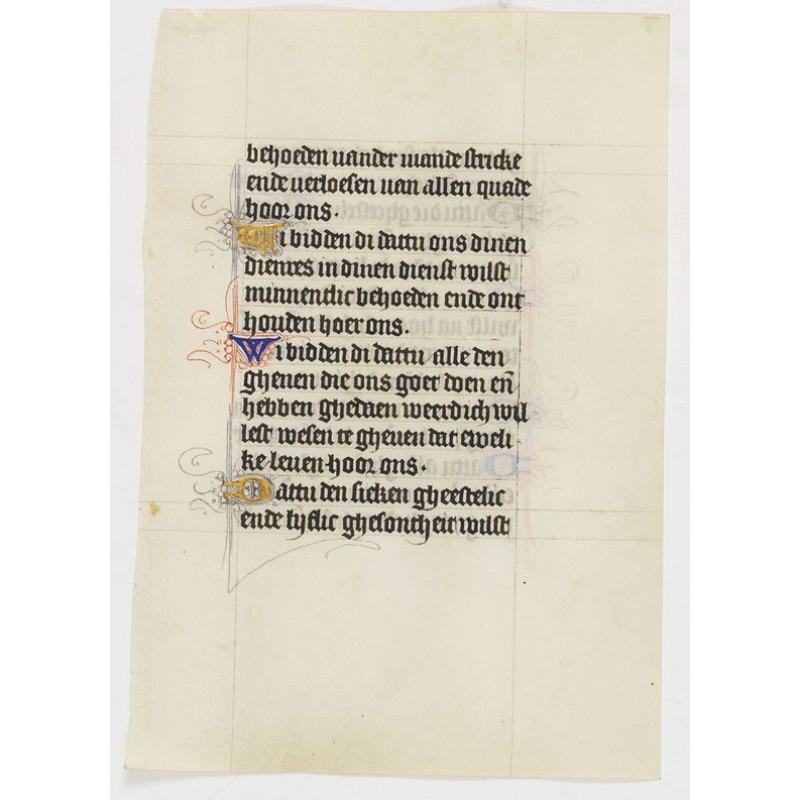 behoeden vander viande stricke
ende verloesen van allen quade
hoor ons.
Wi bidden di dattu ons dinen
dienres in dinen dienst wilst
minnentlic behoeden ende ont
houden hoer ons.
Wi bidden di dattu alle den
ghenen die ons goet doen eñ
hebben ghedaen weerdich wil
lest wesen te gheuen dat eweli-
ke leuen hoor ons.
Dattu den sieken gheestelic
ende lyflic ghesontheit wilst